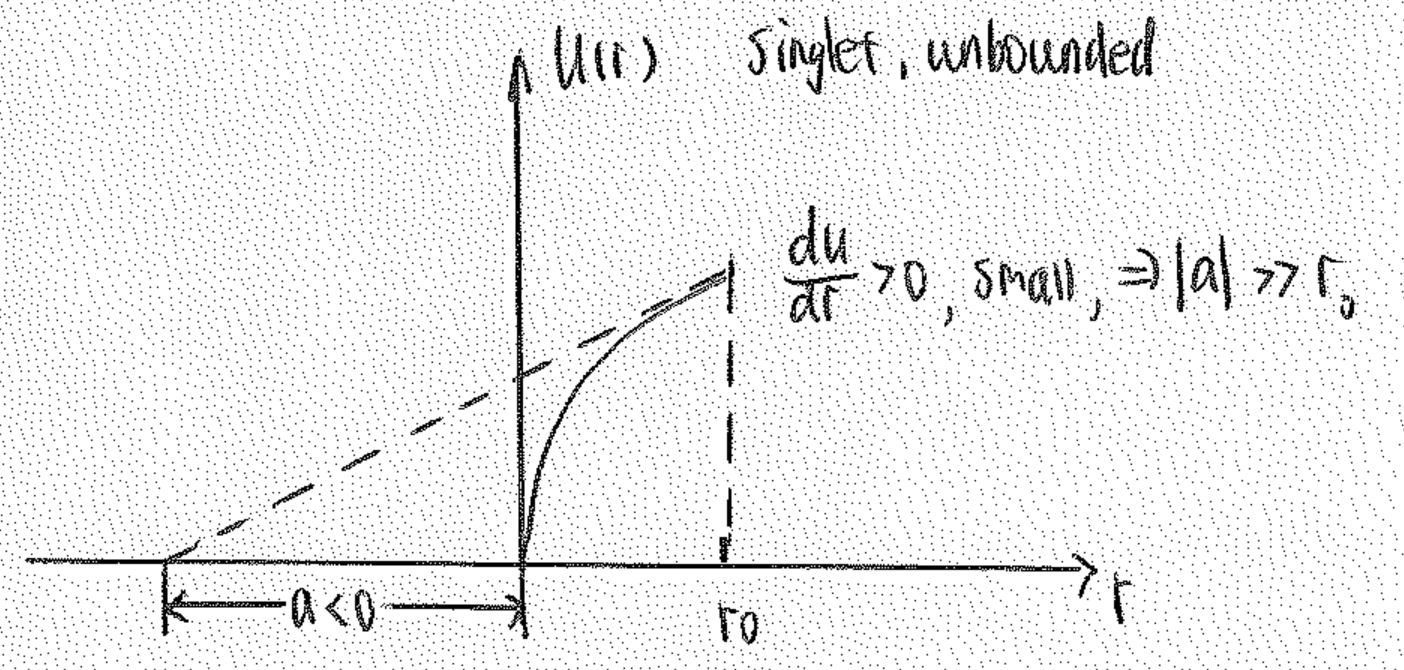 u(r) singlet, unbounded
du/dr >0, small, ⇒ |a| >> r₀
a<0
r₀
r